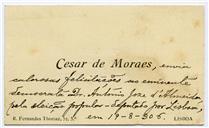 Cesar de Moraes, envia
calorosas felicitações ao eminente
democrata Dr. António José d'Almeida
pela eleição popular - deputado por Lisboa,
em 19-8-906.
R. Fernandes Thomaz,
LISBOA